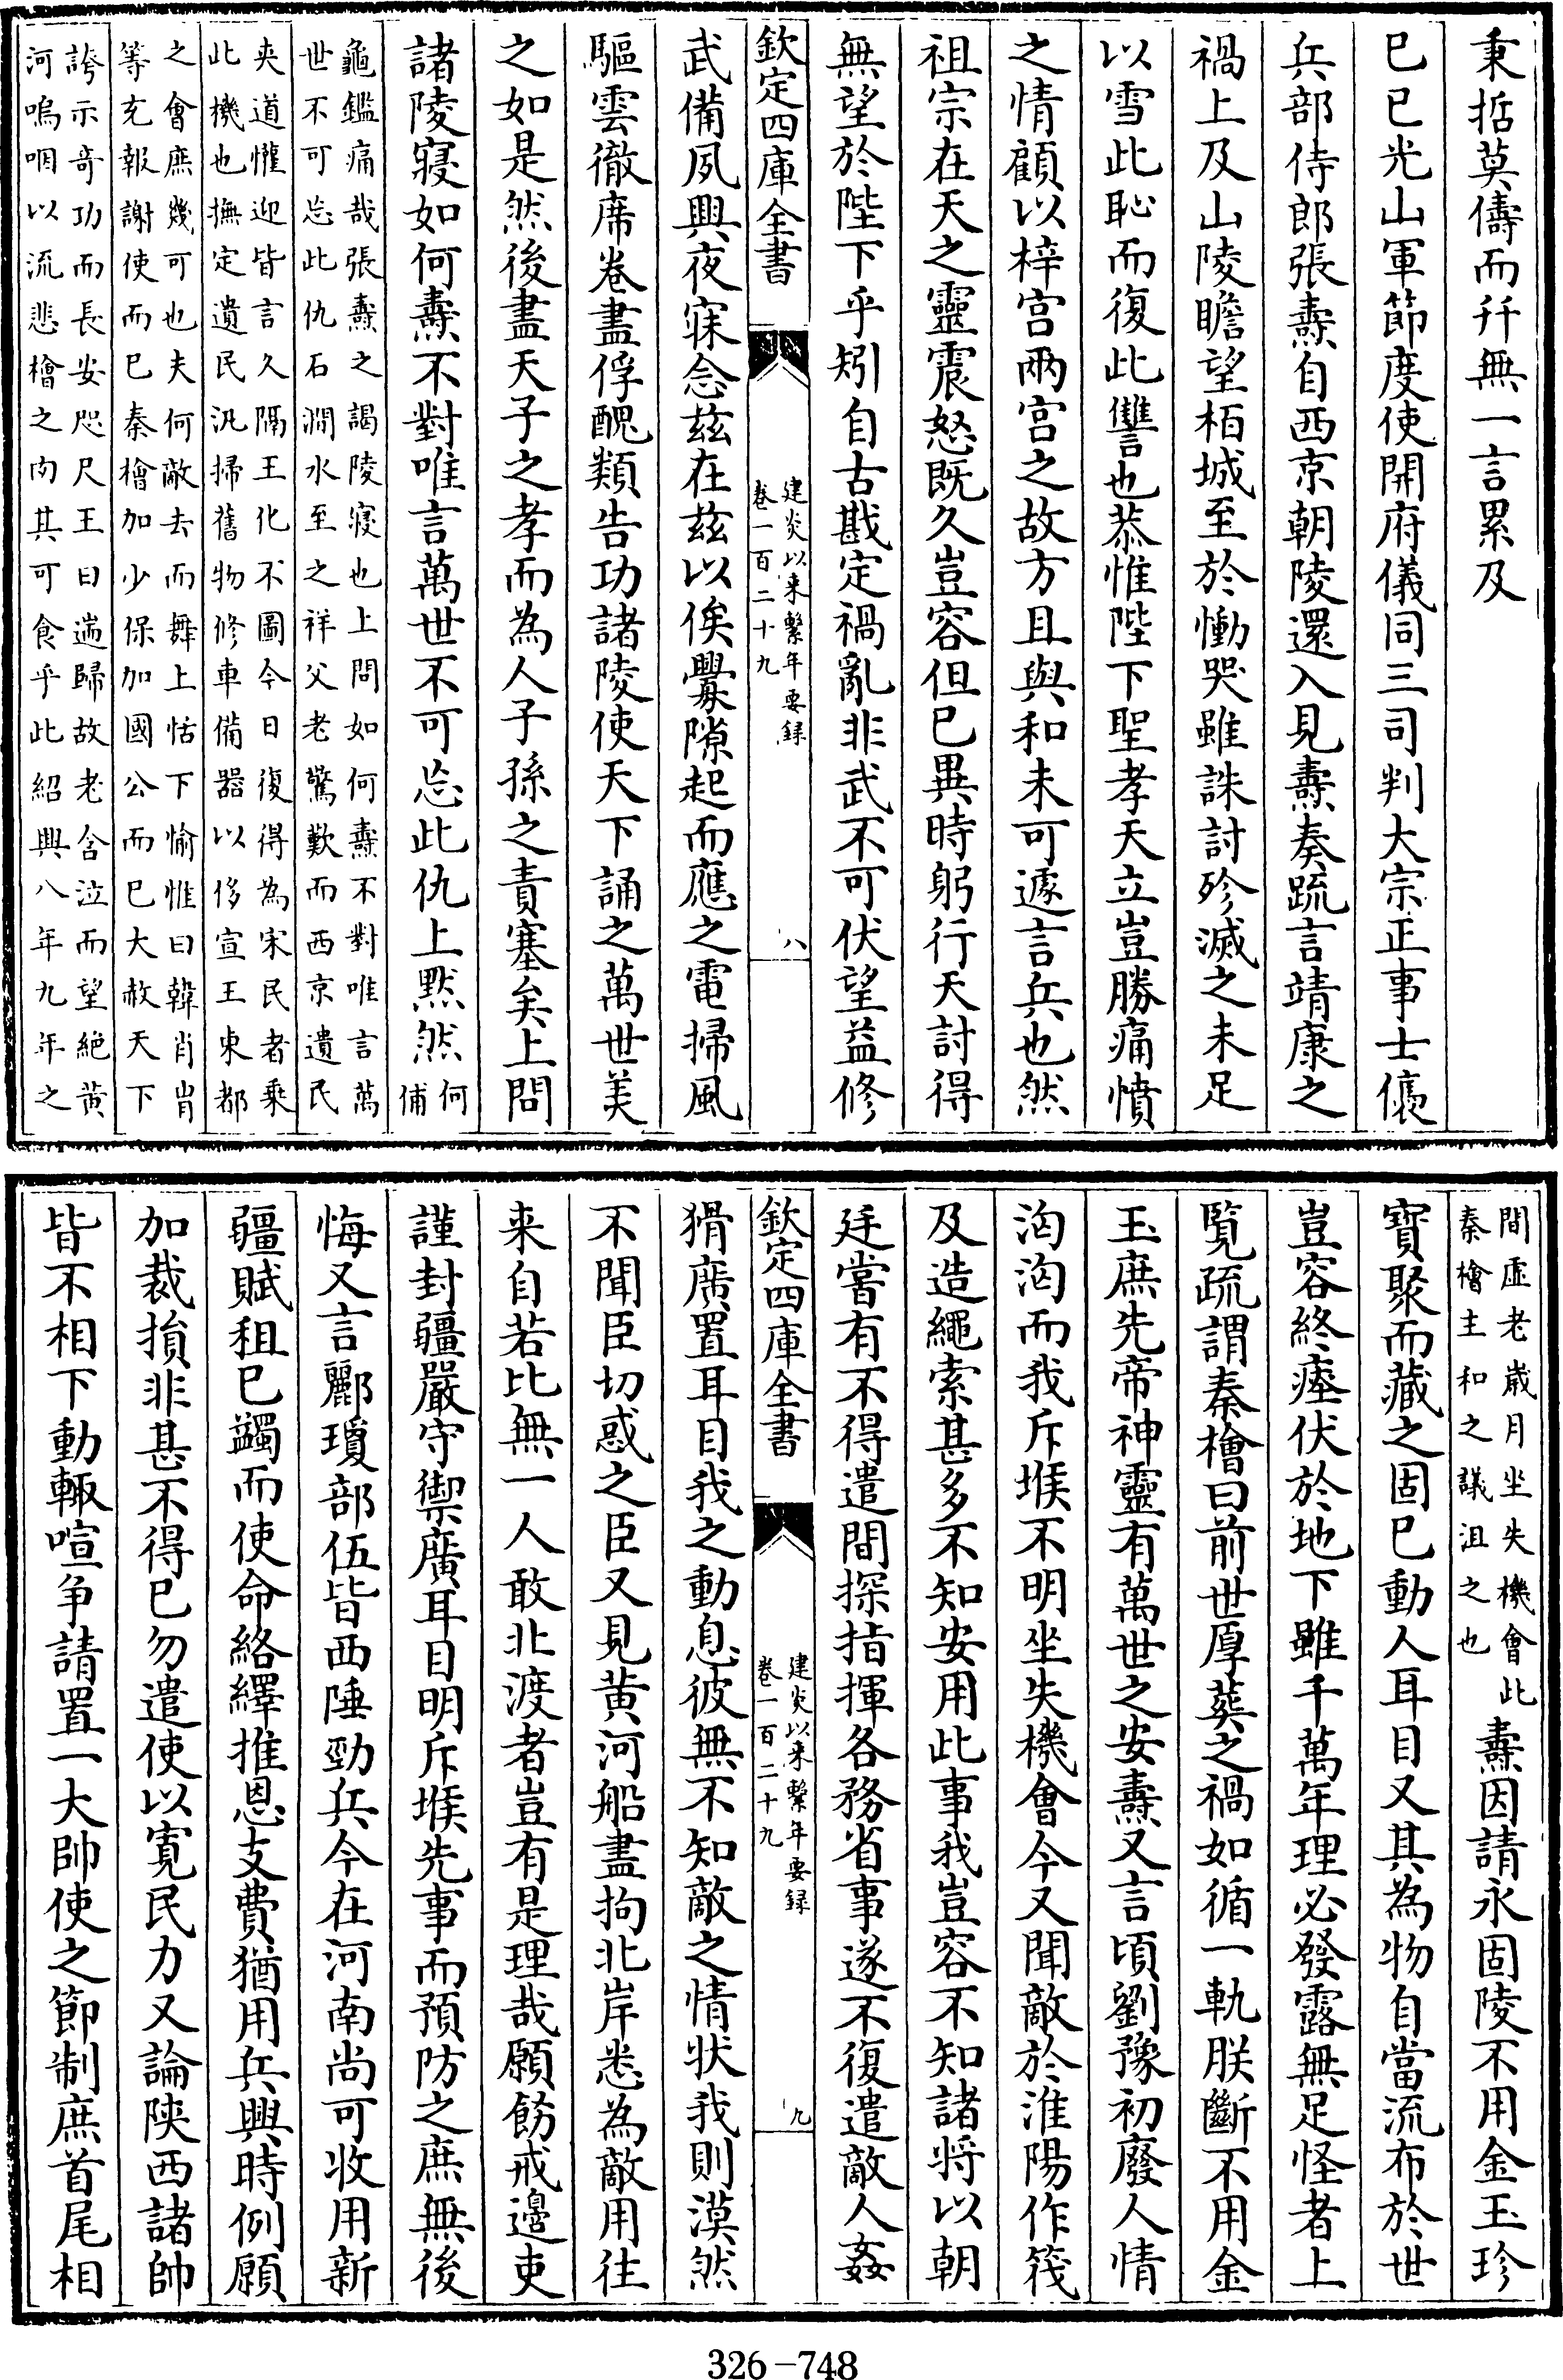 秉哲莫儔而幵無一言累及
已巳光山軍節度使開府儀同三司判大宗正事士㒟
兵部侍郎張燾自西京朝陵還入見燾奏疏言靖康之
禍上及山陵瞻望栢城至於慟哭雖誅討殄滅之未足
以雪此恥而復此讐也恭惟陛下聖孝天立豈勝痛憤
之情顧以梓宫兩宫之故方且與和未可遽言兵也然
祖宗在天之靈震怒既久豈容但已異時躬行天討得
無望於陛下乎矧自古戡定禍亂非武不可伏望益修
欽定四庫全書
建炎以来繫年要録
卷一百二十九
八
武備夙興夜寐念兹在兹以俟釁隙起而應之電掃風
驅雲徹席卷盡俘醜類告功諸陵使天下誦之萬世美
之如是然後盡天子之孝而為人子孫之責塞矣上問
諸陵寢如何燾不對唯言萬世不可忘此仇上黙然何
俌
龜鑑痛哉張燾之謁陵寢也上問如何燾不對唯言萬
世不可忘此仇石澗水至之祥父老驚歎而西京遺民
夾道懽迎皆言久隔王化不圖今日復得為宋民者乗
此機也撫定遺民汛掃舊物修車備器以侈宣王東都
之會庶幾可也夫何敵去而舞上恬下愉惟曰韓肖胄
等充報謝使而已秦檜加少保加國公而已大赦天下
誇示竒功而長安咫尺王日遄歸故老含泣而望絶黄
河嗚咽以流悲檜之肉其可食乎此紹興八年九年之
間虚老嵗月坐失機會此
秦檜主和之議沮之也
燾因請永固陵不用金玉珍
寳聚而藏之固已動人耳目又其為物自當流布於世
豈容終瘞伏於地下雖千萬年理必發露無足怪者上
覧疏謂秦檜曰前世厚葬之禍如循一軌朕斷不用金
玉庶先帝神靈有萬世之安燾又言頃劉豫初廢人情
洶洶而我斥堠不明坐失機會今又聞敵於淮陽作筏
及造繩索甚多不知安用此事我豈容不知諸将以朝
廷嘗有不得遣間探指揮各務省事遂不復遣敵人姦
欽定四庫全書
建炎以来繫年要録
卷一百二十九
九
猾廣置耳目我之動息彼無不知敵之情状我則漠然
不聞臣切惑之臣又見黄河船盡拘北岸悉為敵用往
来自若比無一人敢北渡者豈有是理哉願飭戒邉吏
謹封疆嚴守禦廣耳目明斥堠先事而預防之庶無後
悔又言酈瓊部伍皆西陲勁兵今在河南尚可收用新
疆賦租已蠲而使命絡繹推恩支費猶用兵興時例願
加裁損非甚不得已勿遣使以寛民力又論陜西諸帥
皆不相下動輙喧争請置一大帥使之節制庶首尾相
326－748